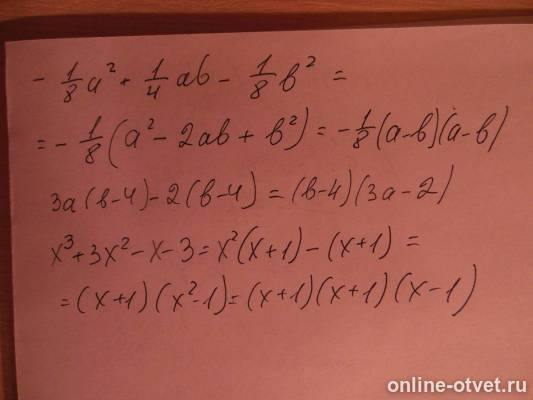 - 1/8 a² + 1/4 ab - 1/8 b² =
= - 1/8 (a² - 2ab + b²) = - 1/8 (a-b)(a-b)
3a(b-4)-2(b-4)=(b-4)(3a-2)
x³+3x²-x-3=x²(x+1)-(x+1)=
=(x+1)(x²-1)=(x+1)(x+1)(x-1)
online-otvet.ru